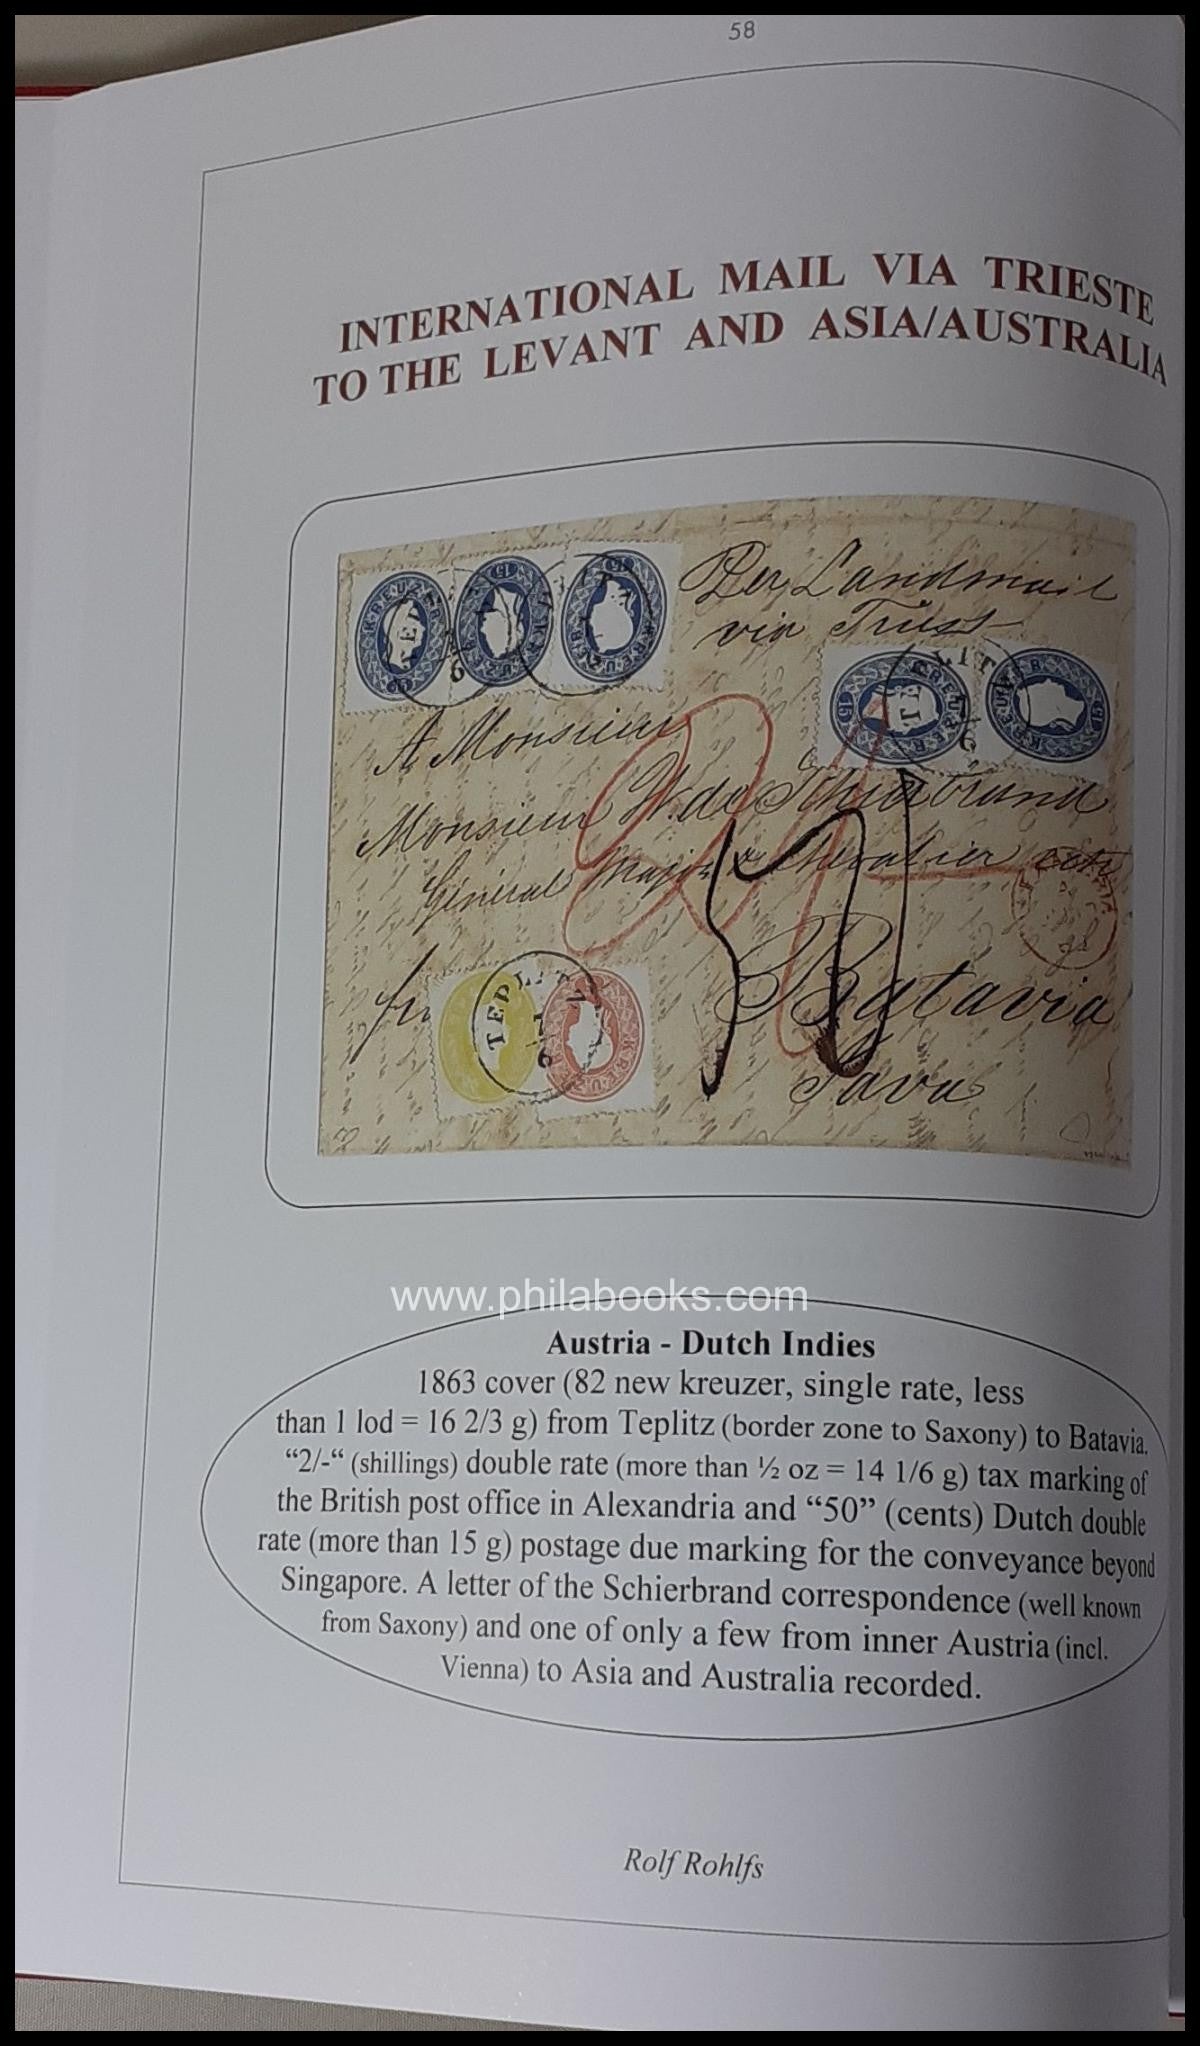 58
INTERNATIONAL MAIL VIA TRIESTE
TO THE LEVANT AND ASIA/AUSTRALIA
Per Landmail
via Triest
A Monsieur
Monsieur W. de Schierbrand
Général Major & Chevalier
Batavia
Java
TEPLITZ
KREUZER
15
www.philabooks.com
Austria - Dutch Indies
1863 cover (82 new kreuzer, single rate, less
than 1 lod = 16 2/3 g) from Teplitz (border zone to Saxony) to Batavia.
“2/-“ (shillings) double rate (more than ½ oz = 14 1/6 g) tax marking of
the British post office in Alexandria and “50” (cents) Dutch double
rate (more than 15 g) postage due marking for the conveyance beyond
Singapore. A letter of the Schierbrand correspondence (well known
from Saxony) and one of only a few from inner Austria (incl.
Vienna) to Asia and Australia recorded.
Rolf Rohlfs